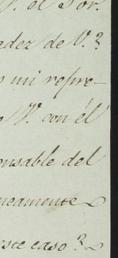 V. el Sor.
ader de V.?
mi repre-
V. con él
onsable del
neamente
este caso?